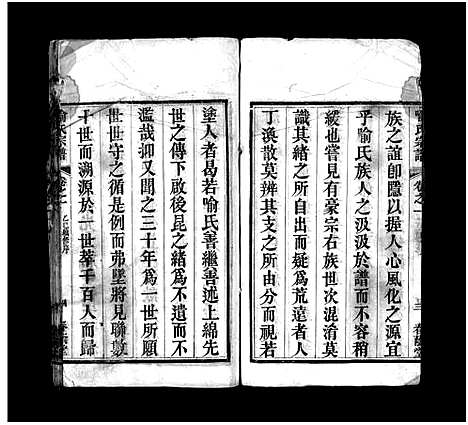 族之誼卽隱以握人心風化之源宜
乎喻氏族人之汲汲於譜而不容稍
緩也嘗見有豪宗右族世次混淆莫
識其緒之所自出而疑爲荒遠者人
丁渙散莫辨其支之所由分而視若
塗人者曷若喻氏善繼善述上綿先
世之傳下啟後昆之緒爲不遺而不
濫哉抑又聞之三十年爲一世所願
世世守之循是例而弗墜將見聯數
十世而溯源於一世萃千百人而歸
喻氏宗譜
卷之一